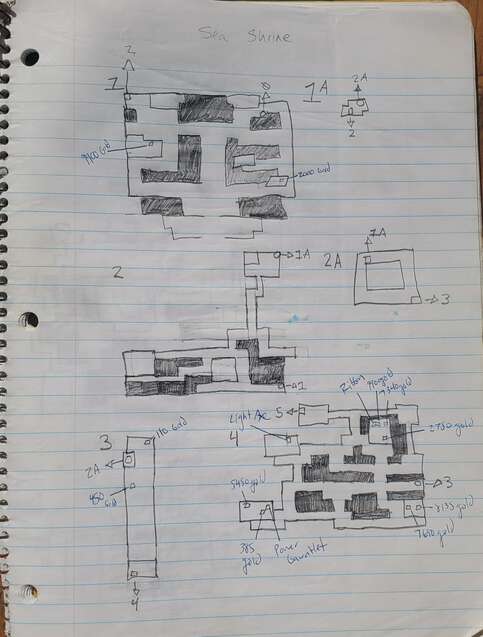 Sea Shrine
2
1
8
1A
2A
2
9900 Gold
2000 Gold
2
1A
2A
1A
3
1
3
110 Gold
2A
450 Gold
4
4
Light Axe
5
Ribbon
9900 gold
7340 gold
2750 gold
3
5450 gold
385 gold
Power Gauntlet
8135 gold
7690 gold